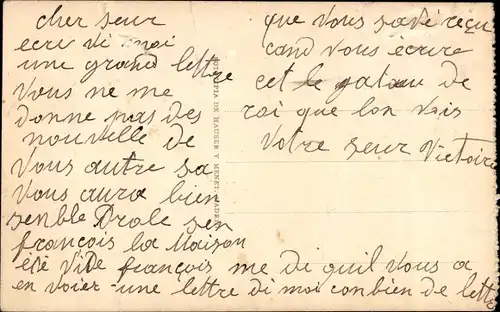 cher seur
ecri vi moi
une grand lettre
Vous ne me
donne pas des
nouvelle de
vous autre sa
vous aura bien
senble Drole sen
françois la maison
été vide françois me di quil vous a
en voier une lettre di moi conbien de lettre
que vous savé reçu
cand vous écrire
cet le gatau de
roi que lon vois
votre seur Victoire
FOTOTIPIA DE HAUSER Y MENET. MADRID